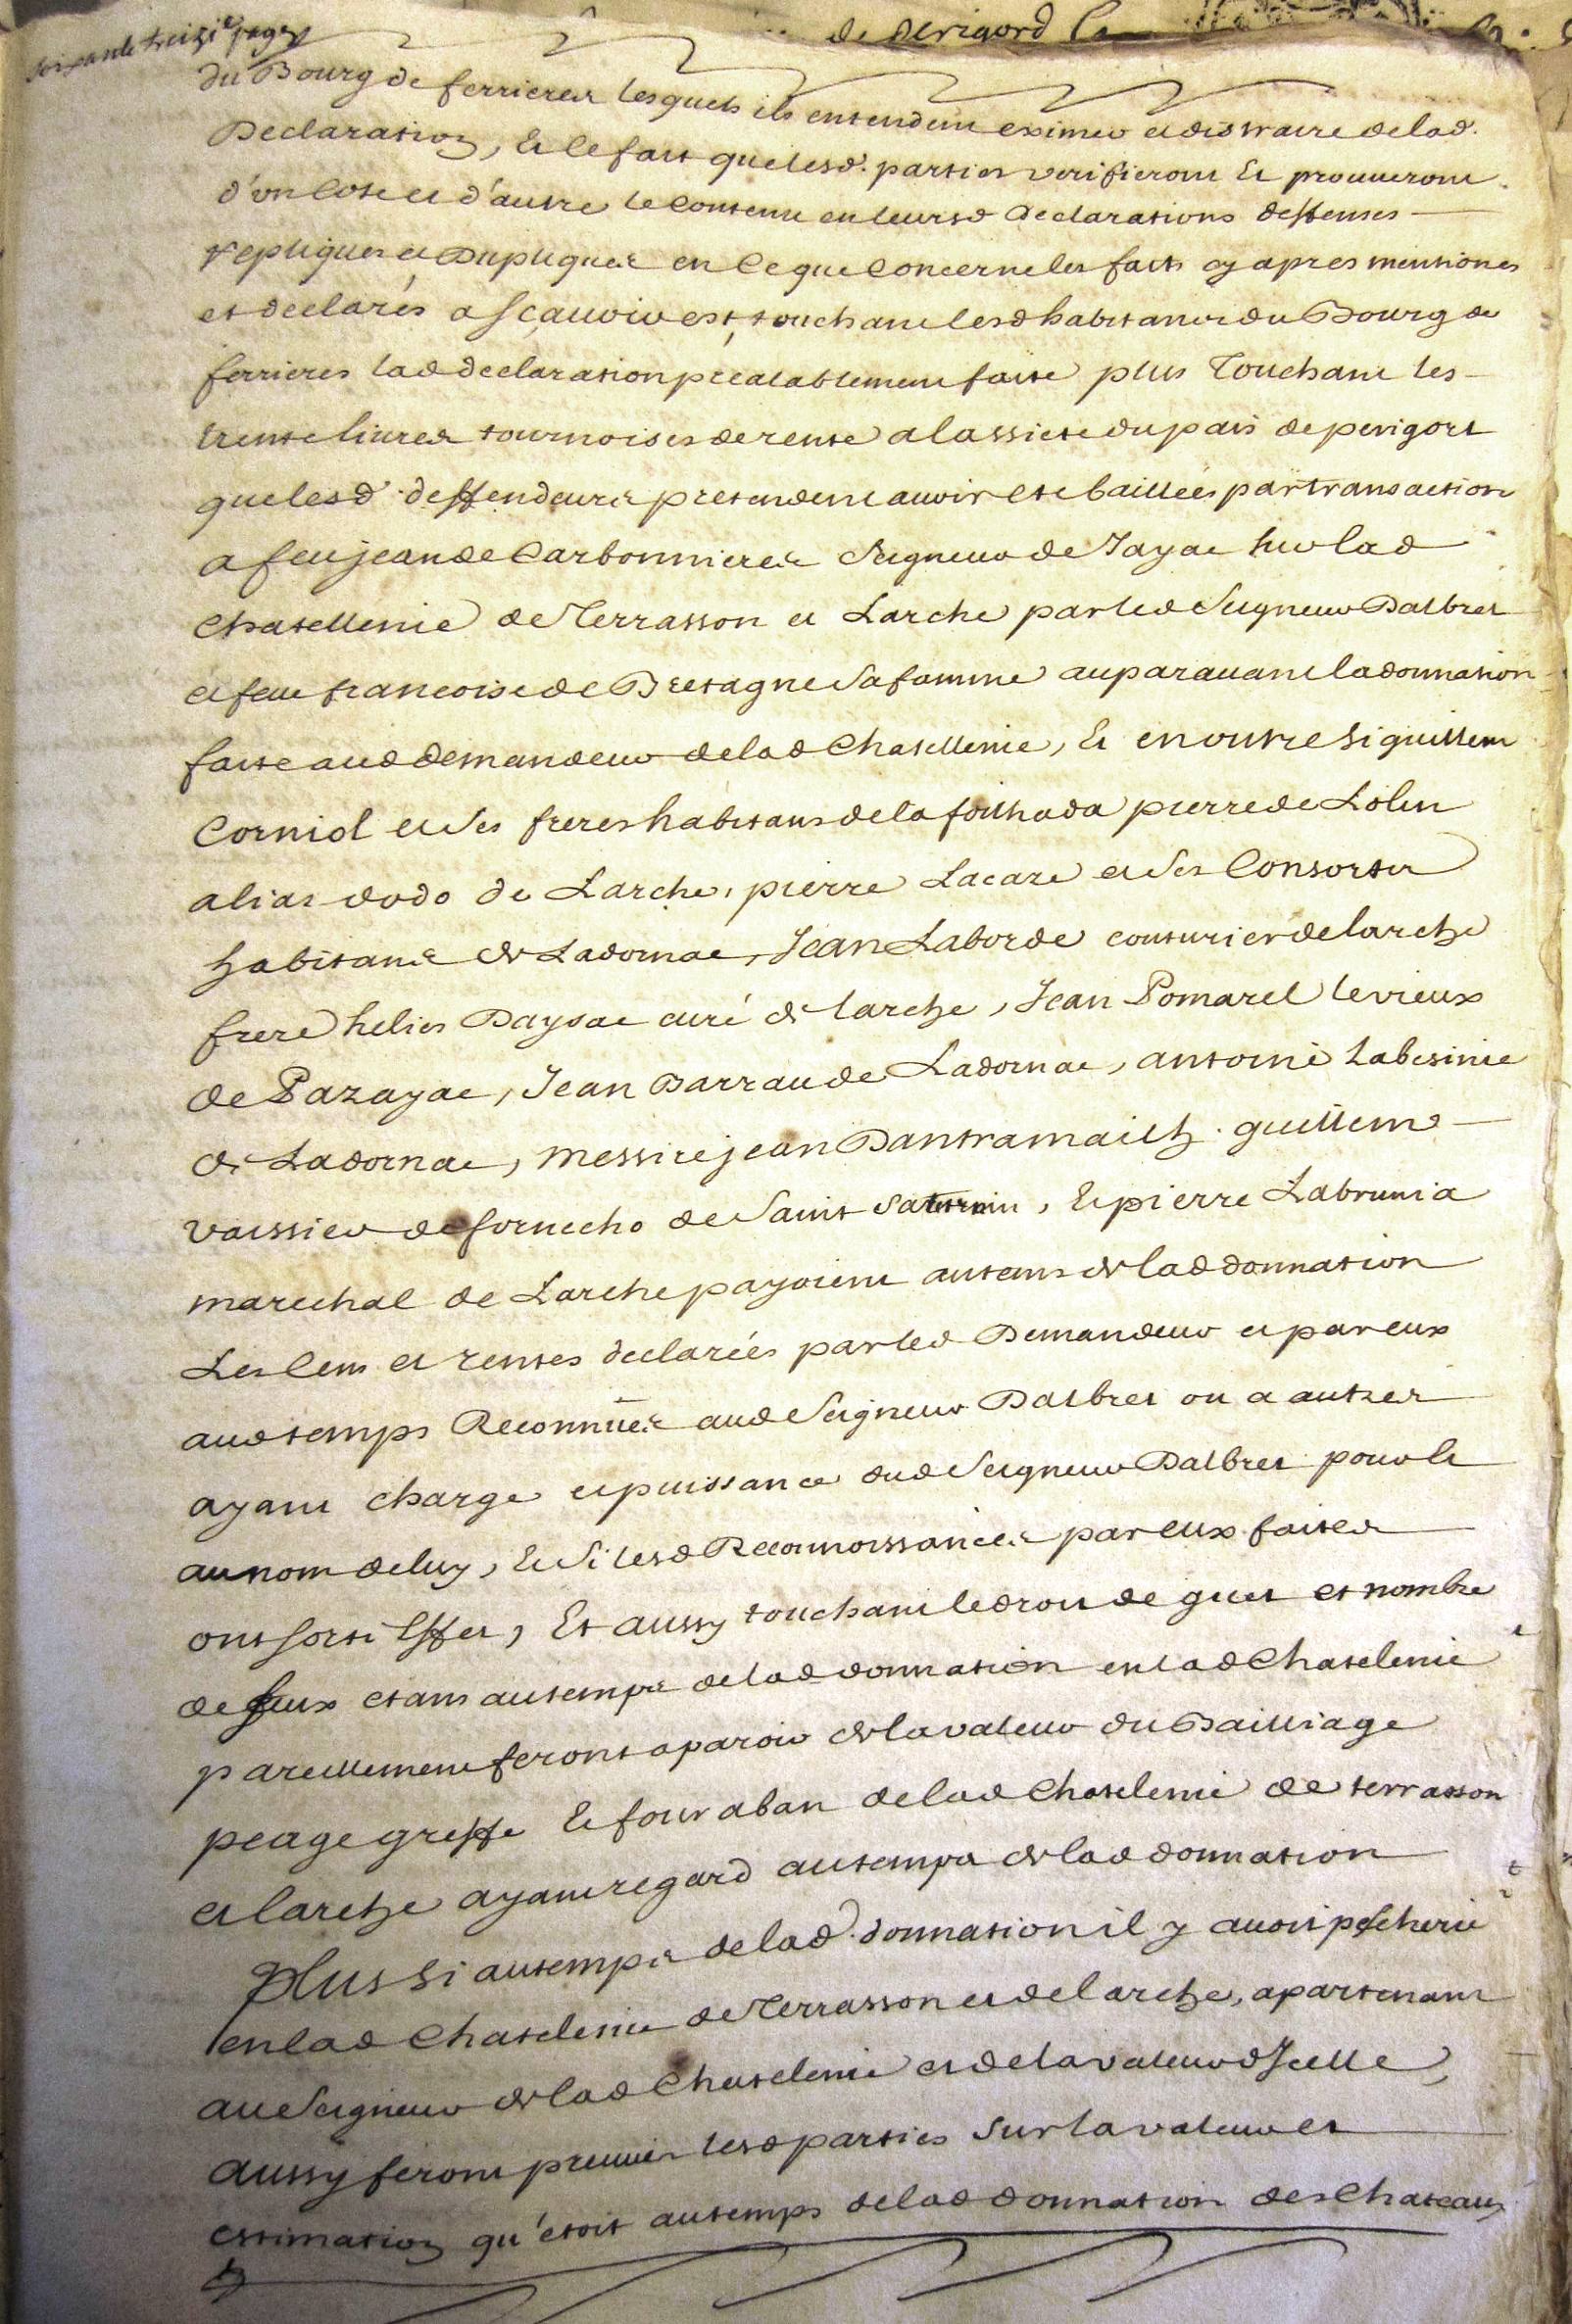 soixante treizie page
de perigord
du Bourg de ferrieres lesquels ils entendent eximer et distraire delad.
Declaration, Et le fait que lesd. parties verifieront Et prouveront
d'un Coste et d'autre le Contenu en leursd Declarations deffenses
repliques et Dupliques en Ce que Concerne les faits cy apres mentionés
et declarés a sçauoir est, touchant lesd habitans du Bourg de
ferrieres lad declaration prealablement faite plus Touchant les
trente liures tournoises de rente a lassiete du païs de perigort
que lesd. deffendeurs pretendent auoir este baillées par transaction
a feu jean de Carbonnieres Seigneur de Jayac sur lad
Chatellenie de Terrasson et Larche par led Seigneur Dalbret
et feue francoise de Bretagne Sa famme auparauant la donnation
faite aud demandeur de lad Chatellenie, Et en outre Si guillem
Corniol et Ses freres habitans de la foilhada pierre de Lolm
alias dodo de Larche, pierre Lacaze et Ses Consorts
habitans de Ladornac, Jean Laborde couturier de larche
frere helies Dayssac curé de larche, Jean Pomarel le vieux
de Pazayac, Jean Barrau de Ladornac, antoine Labesinie
de Ladornac, messire jean Dantramailh. guillem
vaissier de fornecho de Saint Saturnin, Et pierre Labrunia
marechal de Larche payoient au tems de lad donnation
Les Cens et rentes declarées par led Demandeur et par eux
aud temps Reconnues aud Seigneur Dalbret ou a autres
ayant charge et puissance dud Seigneur Dalbret pour le
au nom de luy, Et Si lesd Reconnoissances par eux faites
ont sorti Effet, Et aussy touchant le droit de guet et nombre
de feux etans au temps de lad donnation en lad Chatelenie
pareillement feront aparoir de la valeur du Bailliage
peage greffe Et four a ban de lad Chatelenie de terrasson
et larche ayant regard au temps de lad donnation
plus Si au temps de lad. donnation il y auoit pescherie
en lad Chatelenie de Terrasson et de larche, apartenant
au Seigneur de lad Chatelenie et de la valeur d'Icelle,
aussy feront preuues lesd parties Sur la valeur et
estimation qu'etoit au temps de lad donnation des Chateaux